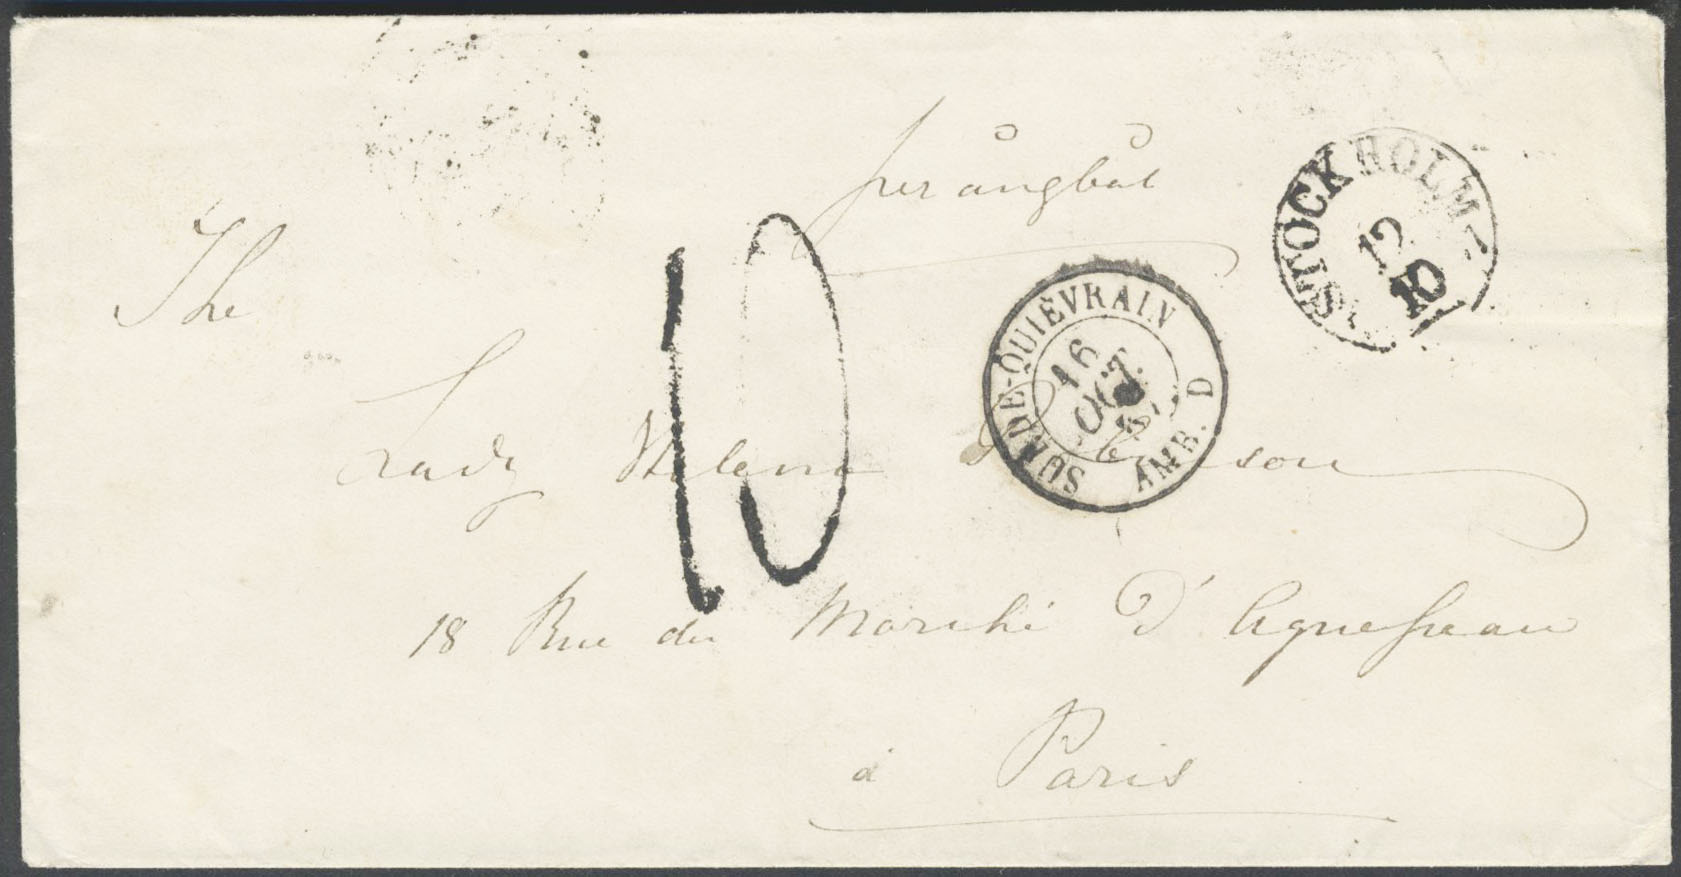 per ångbåt
STOCKHOLM
12
10
The
10
SUÈDE-QUIÉVRAIN
16
OCT.
AMB. D
Lady
18 Rue du Marché D'Aguesseau
à Paris